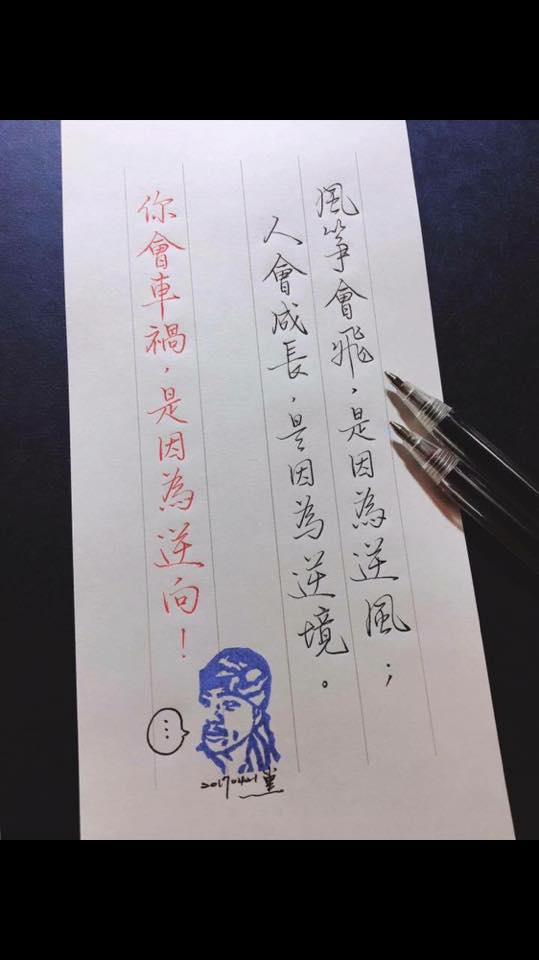 風箏會飛，是因為逆風；
人會成長，是因為逆境。
你會車禍，是因為逆向！
...
20170421